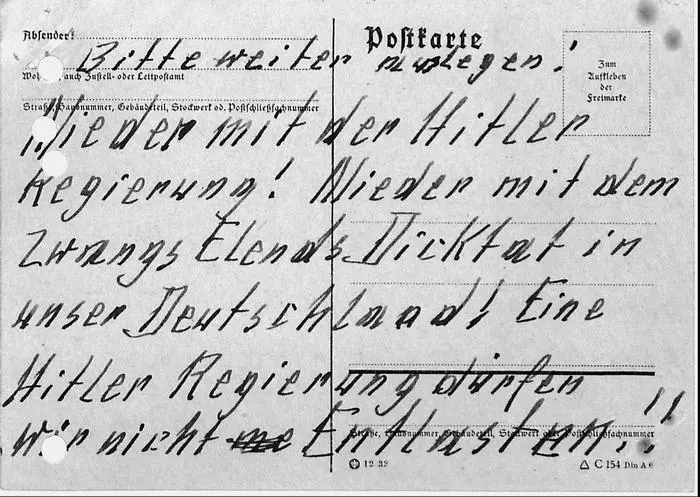 Absender:
Postkarte
Bitte weiter auslegen!
Wohnort, auch Zustell- oder Leitpostamt
Zum
Aufkleben
der
Freimarke
Straße, Hausnummer, Gebäudeteil, Stockwerk od. Postschließfachnummer
Nieder mit der Hitler
Regierung! Nieder mit dem
Zwangs Elends Dicktat in
unser Deutschland! Eine
Hitler Regierung dürfen
wir nicht Entlasten..!!
Straße, Hausnummer, Gebäudeteil, Stockwerk oder Postschließfachnummer
C 154 Din A 6